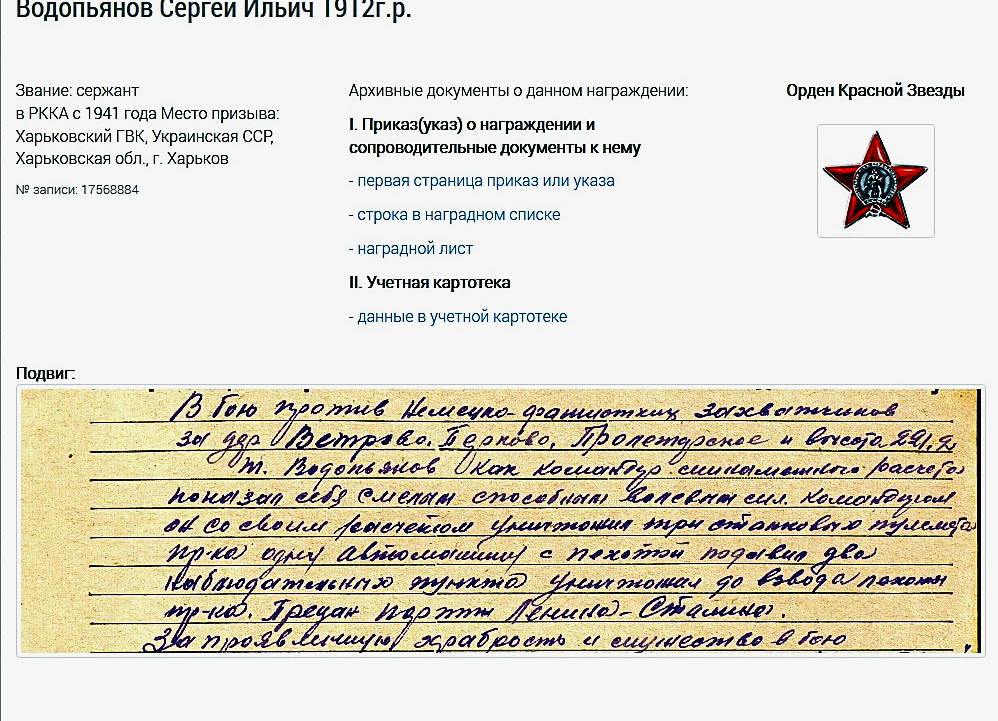 Водопьянов Сергей Ильич 1912г.р.
Звание: сержант
в РККА с 1941 года Место призыва:
Харьковский ГВК, Украинская ССР,
Харьковская обл., г. Харьков
№ записи: 17568884
Архивные документы о данном награждении:
I. Приказ(указ) о награждении и
сопроводительные документы к нему
- первая страница приказ или указа
- строка в наградном списке
- наградной лист
II. Учетная картотека
- данные в учетной картотеке
Орден Красной Звезды
Подвиг:
В бою против Немецко-фашистких захватчиков
за дер Ветрово, Горково, Пролетарское и высота 221,2
т. Водопьянов как командир расчета
показал себя смелым способным волевым командиром
он со своим расчетом уничтожил три станковых пулемета
пр-ка одну автомашину с пехотой подавил два
наблюдательных пункта уничтожил до взвода пехоты
пр-ка. Предан партии Ленина-Сталина.
За проявленную храбрость и мужество в бою